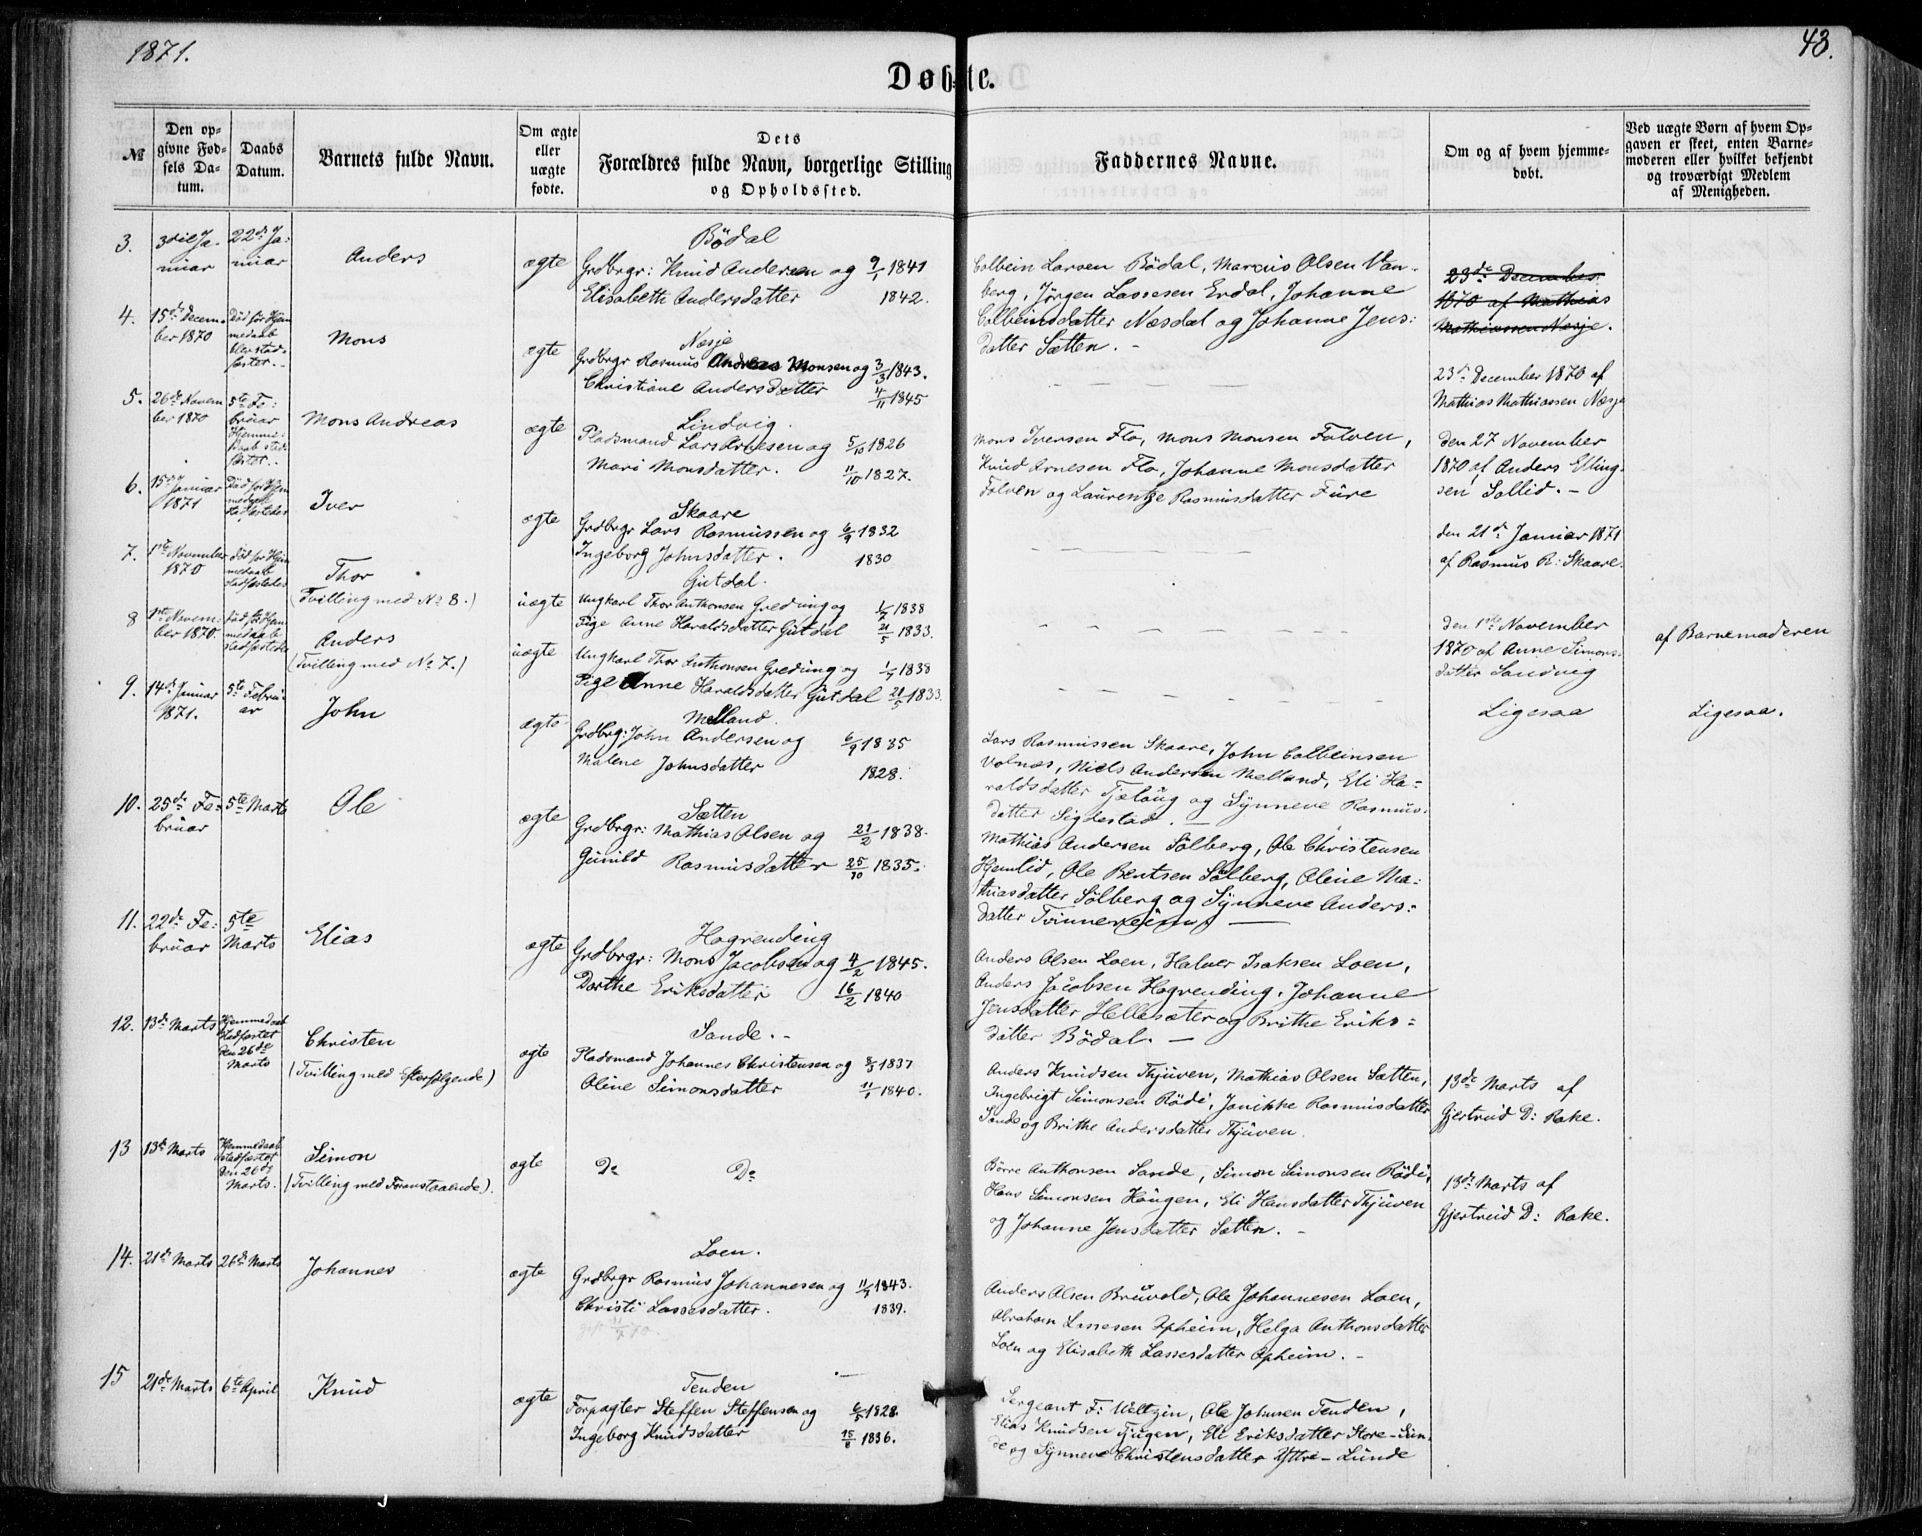 1871.
43.
Døbte.
№
Den op-
givne Fød-
sels Da-
tum.
Daabs
Datum.
Barnets fulde Navn.
Om ægte
eller
uægte
fødte.
Dets
Forældres fulde Navn, borgerlige Stilling
og Opholdssted.
Faddernes Navne.
Om og af hvem hjemme-
døbt.
Ved uægte Børn af hvem Op-
gaven er skeet, enten Barne-
moderen eller hvilket bekjendt
og troværdigt Medlem
af Menigheden.
3.
3die Ja-
nuar
22de Ja-
nuar
Anders
ægte
Bödal
Grdbrgr: Knud Andersen og 9/1 1841
Elisabeth Andersdatter 1842.
Colbein Larsen Bödal, Marcus Olsen Van-
berg, Jørgen Lassesen Erdal, Johanne
Colbeinsdatter Næsdal og Johanne Jens-
datter Sætten. -
23de December
1870 af Mathias
Mathiassen Nesje.
4.
15de Decem-
ber 1870
Död för Hjem-
medaab
blev stad-
fæstet. -
Mons
ægte
Nesje
Grdbrgr Rasmus Monsen og 3/3 1843.
Christiane Andersdatter 4/11 1845
23de December 1870 af
Mathias Mathiassen Nesje
5.
26de Novem-
ber 1870
5te Fe-
bruar
Hjemme-
daab stad-
fæstet.
Mons Andreas
ægte
Lindvig.
Pladsmand Lars Arnesen og 5/10 1826
Mari Monsdatter. 11/10 1827.
Mons Iversen Flo, Mons Monsen Folven,
Knud Arnesen Flo, Johanne Monsdatter
Folven og Laurentze Rasmusdatter Füre
den 27 November
1870 af Anders Elling-
sen Sollid. -
6.
15de Januar
1871
Död for Hjem-
medaab
stadfæstedes
Iver
ægte
Skaare
Grdbrgr Lars Rasmussen og 6/9 1832
Ingeborg Johnsdatter. 1830
den 21de Januar 1871
af Rasmus R: Skaare.
7.
1ste November
1870
död for Hjem-
medaab
stadfæstedes
Thor
(Tvilling med No 8.)
uægte
Gutdal.
Ungkarl Thor Anthonsen Greding og 1/7 1838
Pige Anne Haraldsdatter Gutdal 21/5 1833.
den 1ste November
1870 af Anne Simons-
datter Sandvig
af Barnemoderen
8
1ste Novem-
ber 1870.
död for Hjem-
medaab
stadfæstedes
Anders
(Tvilling med No 7.)
uægte
Ungkarl Thor Anthonsen Greding og 1/7 1838
Pige Anne Haraldsdatter Gutdal 21/5 1833.
Ligesaa
Ligesaa.
9.
14de Januar
1871.
5te Febru-
ar
John
ægte
Melland.
Grdbrg: John Andersen og 6/9 1835
Malene Johnsdatter 1828.
Lars Rasmussen Skaare, John Colbeinsen
Volnæs, Niels Andersen Melland, Eli Ha-
raldsdatter Tjelaug og Synneve Rasmus-
datter Sigdestad. -
10.
25de Fe-
bruar
5te Marts
Ole
ægte
Sætten
Grdbrgr: Mathias Olsen og 21/2 1838.
Gunild Rasmusdatter 25/10 1835.
Mathias Andersen Sölberg, Ole Christensen
Hjemlid, Ole Bentsen Sölberg, Oline Ma-
thiasdatter Sölberg og Synneve Anders-
datter Tvinnereim.
11.
22de Fe-
bruar
5te
Marts
Elias
ægte
Hogrending
Grdbrgr: Mons Jacobsen og 4/2 1845.
Dorthe Eriksdatter 16/2 1840
Anders Olsen Loen, Halver Isaksen Loen,
Anders Jacobsen Hogrending, Johanne
Jensdatter Hellesæter og Brithe Eriks-
datter Bödal. -
12.
13de Marts
Hjemmedaab
stadfæstet
den 26de
Marts
Christen
(Tvilling med Efterfølgende)
ægte
Sande. -
Pladsmand Johannes Christensen og 8/5 1837
Oline Simonsdatter 11/1 1840.
Anders Knudsen Thjuven, Mathias Olsen Sætten,
Ingebrigt Simonsen Rödi, Janikke Rasmusdatter
Sande og Brithe Andersdatter Thjuven.
13de Marts af
Gjertrud D: Rake.
13
13de Marts
Hjemmedaab
stadfæstet
den 26de
Marts.
Simon
(Tvilling med Foranstaaende).
ægte
Do Do
Börre Anthonsen Sande, Simon Simonsen Rödi,
Hans Simonsen Haugen, Eli Hansdatter Thjuven
og Johanne Jensdatter Sætten. -
13de Marts af
Gjertrud D: Rake.
14.
21de Marts
26de Marts
Johannes
ægte
Loen.
Grdbrgr Rasmus Johannesen og 11/4 1843.
Christi Lassesdatter. 1839.
Anders Olsen Bruvold, Ole Johannesen Loen,
Abraham Lassesen Opheim, Helga Anthonsdatter
Loen og Elisabeth Lassesdatter Opheim. -
15
21de Marts
6te April
Knud
ægte
Tenden
Forpagter Steffen Steffensen og 6/5 1828.
Ingeborg Knudsdatter 15/8 1836.
Sergeant F: Meltzin, Ole Johnsen Tenden,
Elias Knudsen Tjugen, Eli Eriksdatter Store-Sun-
de og Synneve Christensdatter Yttre-Lunde